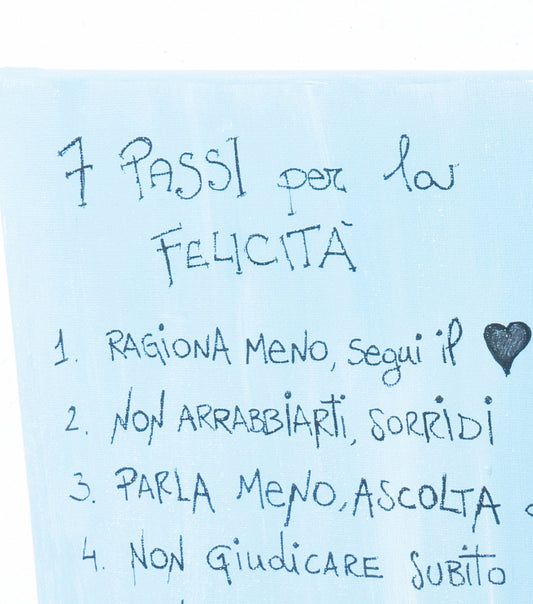 7 PASSI per la
FELICITÀ
1. RAGIONA MENO, segui il ♥
2. NON ARRABBIARTI, SORRIDI
3. PARLA MENO, ASCOLTA
4. NON GiudiCARE SUBITO